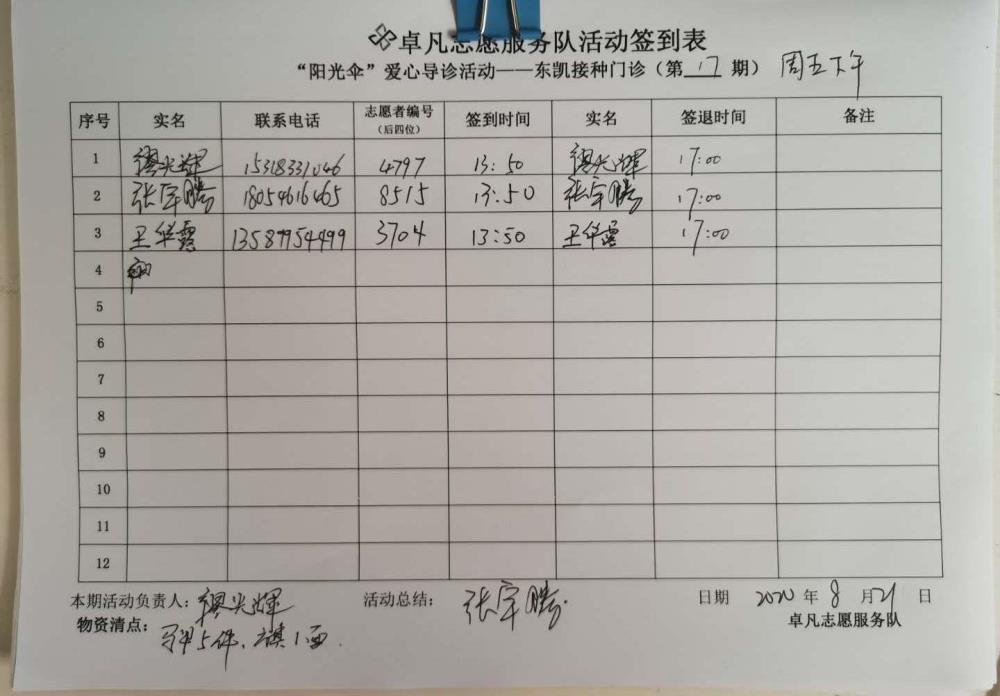 卓凡志愿服务队活动签到表
“阳光伞”爱心导诊活动——东凯接种门诊（第17期） 周五下午
序号 实名 联系电话 志愿者编号（后四位） 签到时间 实名 签退时间 备注
1 缪光辉 15318331046 4797 13:50 缪光辉 17:00
2 张宇腾 18054616465 8515 13:50 张宇腾 17:00
3 王华露 13589954499 3704 13:50 王华露 17:00
4
5
6
7
8
9
10
11
12
本期活动负责人：缪光辉 活动总结：张宇腾 日期 2020年8月21日
物资清点：马甲5件、旗1面. 卓凡志愿服务队